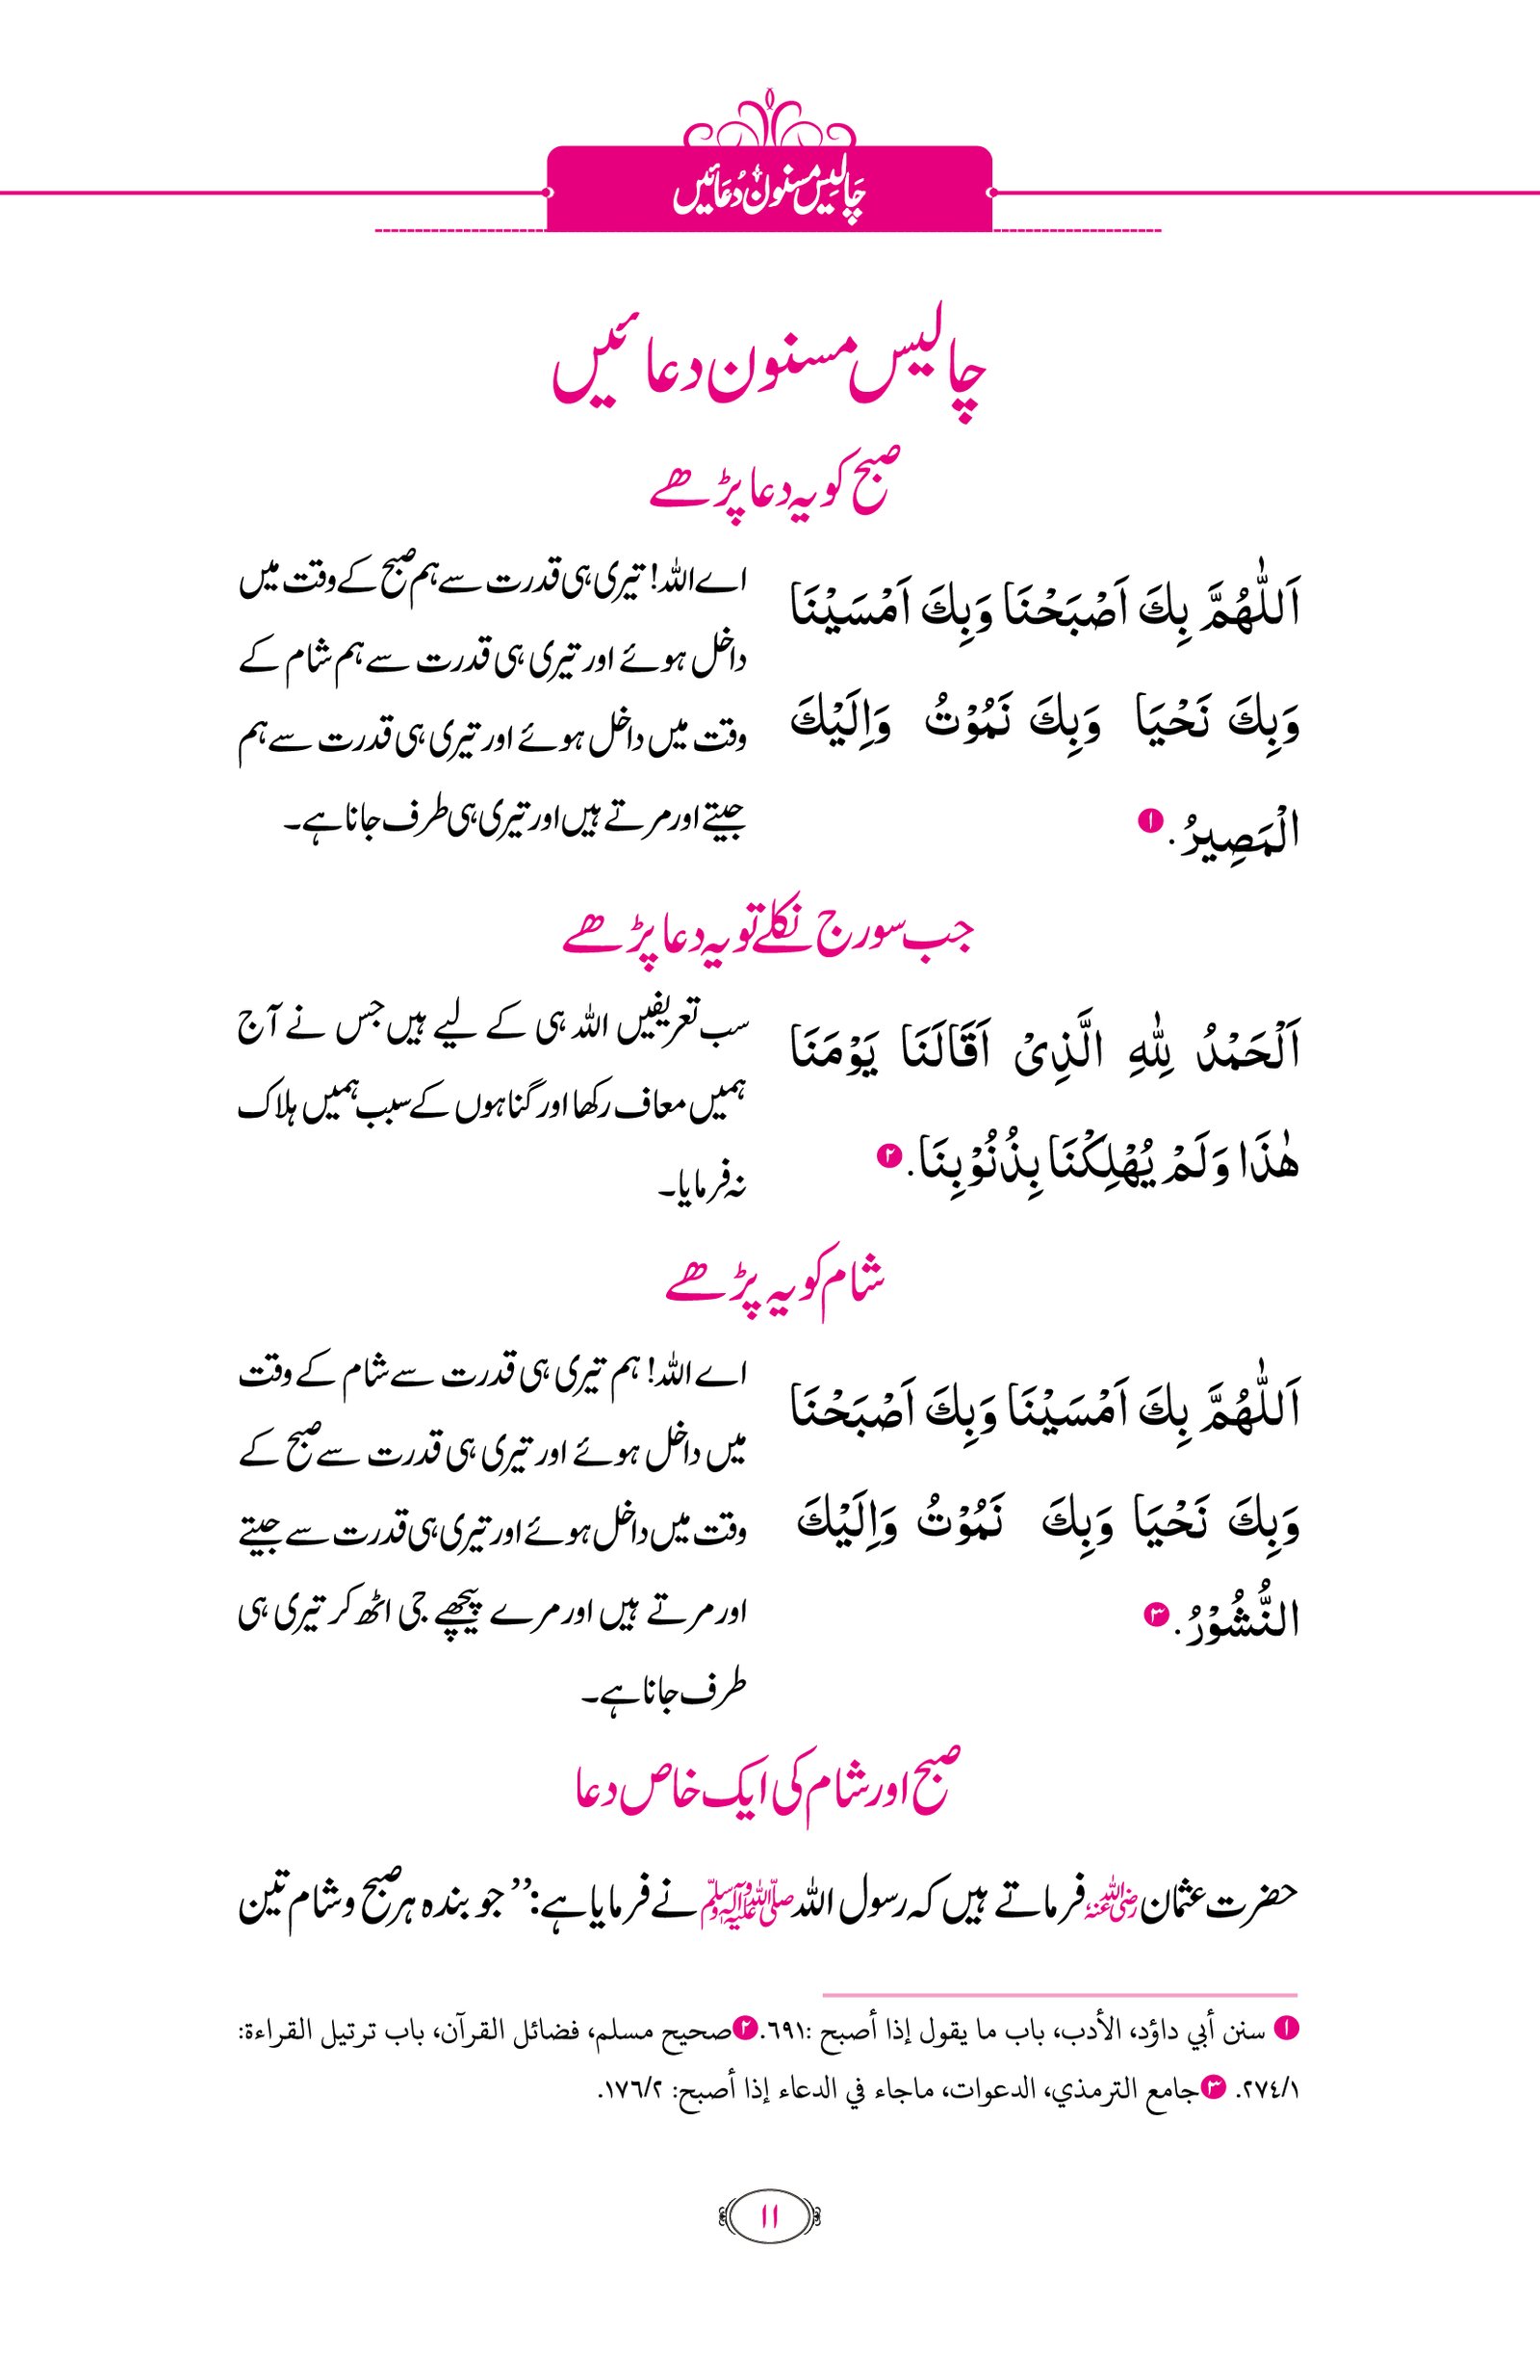 چَالِیس مسنون دُعَائیں
چالیس مسنون دعائیں
صبح کو یہ دعا پڑھے
اَللّٰهُمَّ بِكَ اَصْبَحْنَا وَبِكَ اَمْسَيْنَا
وَبِكَ نَحْيَا وَبِكَ نَمُوْتُ وَاِلَيْكَ
الْمَصِيرُ. ۱
اے اللہ! تیری ہی قدرت سے ہم صبح کے وقت میں
داخل ہوئے اور تیری ہی قدرت سے ہم شام کے
وقت میں داخل ہوئے اور تیری ہی قدرت سے ہم
جیتے اور مرتے ہیں اور تیری ہی طرف جانا ہے۔
جب سورج نکلے تو یہ دعا پڑھے
اَلْحَمْدُ لِلّٰهِ الَّذِیْ اَقَالَنَا يَوْمَنَا
هٰذَا وَلَمْ يُهْلِكْنَا بِذُنُوْبِنَا. ۲
سب تعریفیں اللہ ہی کے لیے ہیں جس نے آج
ہمیں معاف رکھا اور گناہوں کے سبب ہمیں ہلاک
نہ فرمایا۔
شام کو یہ پڑھے
اَللّٰهُمَّ بِكَ اَمْسَيْنَا وَبِكَ اَصْبَحْنَا
وَبِكَ نَحْيَا وَبِكَ نَمُوْتُ وَاِلَيْكَ
النُّشُوْرُ. ۳
اے اللہ! ہم تیری ہی قدرت سے شام کے وقت
میں داخل ہوئے اور تیری ہی قدرت سے صبح کے
وقت میں داخل ہوئے اور تیری ہی قدرت سے جیتے
اور مرتے ہیں اور مرے پیچھے جی اٹھ کر تیری ہی
طرف جانا ہے۔
صبح اور شام کی ایک خاص دعا
حضرت عثمان رضی اللہ عنہ فرماتے ہیں کہ رسول اللہ صلی اللہ علیہ وآلہ وسلم نے فرمایا ہے: ”جو بندہ ہر صبح و شام تین
۱ سنن أبي داؤد، الأدب، باب ما يقول إذا أصبح :٦٩١. ۲ صحيح مسلم، فضائل القرآن، باب ترتيل القراءة:
٢٧٤/١. ۳ جامع الترمذي، الدعوات، ماجاء في الدعاء إذا أصبح: ١٧٦/٢.
۱۱